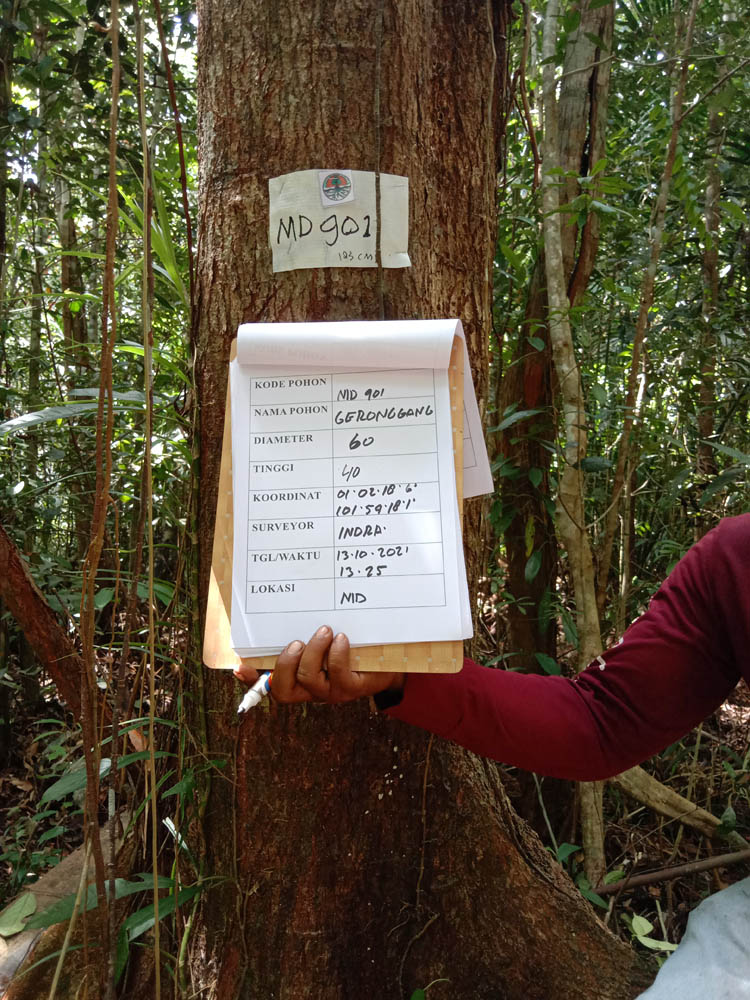 MD 901
193 CM
KODE POHON MD 901
NAMA POHON GERONGGANG
DIAMETER 60
TINGGI 40
KOORDINAT 01·02·18'6'
101·59·18'1'
SURVEYOR INDRA·
TGL/WAKTU 13·10·2021
13·25
LOKASI MD